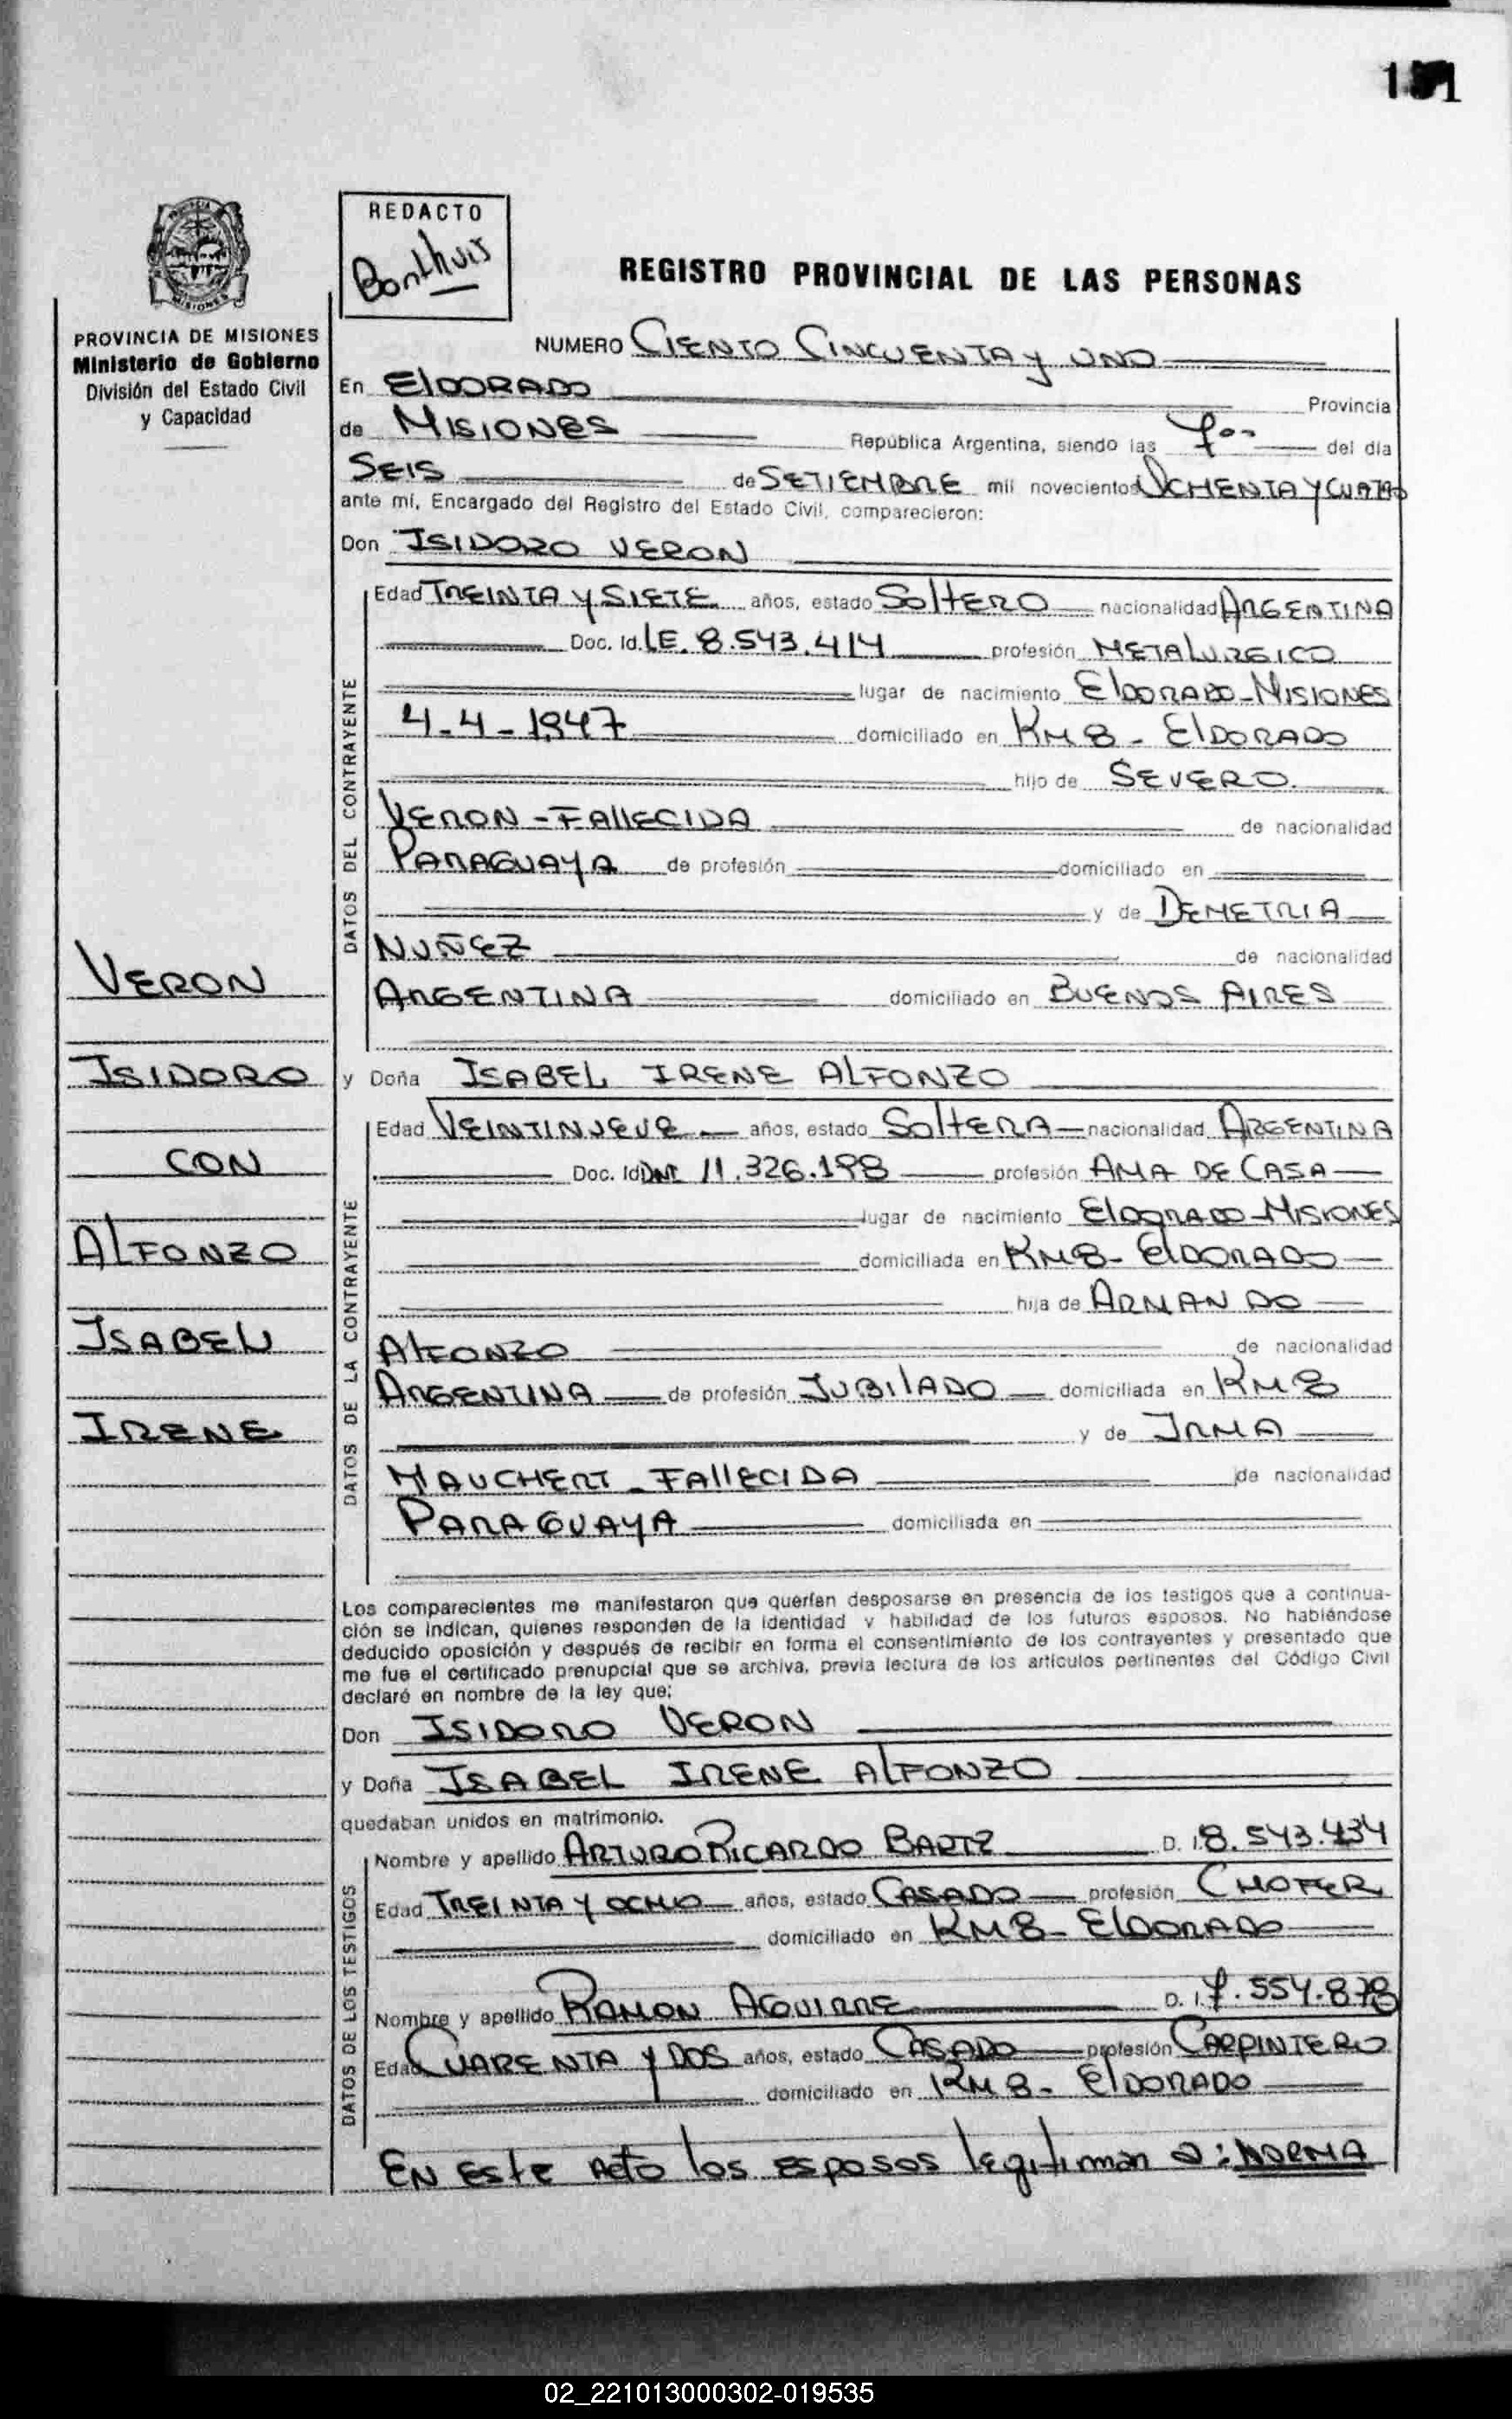 REDACTO
Bonthuis
REGISTRO PROVINCIAL DE LAS PERSONAS
PROVINCIA DE MISIONES
Ministerio de Gobierno
División del Estado Civil
y Capacidad
NUMERO CIENTO CINCUENTA y UNO
En ElDORADO Provincia
de MISIONES República Argentina, siendo las 7°° del día
SEIS de SETIEMBRE mil novecientos OCHENTA Y CUATRO
ante mí, Encargado del Registro del Estado Civil, comparecieron:
Don ISIDORO VERON
DATOS DEL CONTRAYENTE
Edad TREINTA y SIETE años, estado SOLTERO nacionalidad ARGENTINA
Doc. Id. LE. 8.543.414 profesión METALURGICO
lugar de nacimiento ElDORADO-MISIONES
4-4-1947 domiciliado en KM 8 - ElDORADO
hijo de SEVERO
VERON - FAllECIDA de nacionalidad
PARAGUAYA de profesión domiciliado en
y de DEMETRIA
NUÑEZ de nacionalidad
ARGENTINA domiciliado en BUENOS AIRES
VERON
ISIDORO
CON
ALFONZO
ISABEL
IRENE
y Doña ISABEL IRENE ALFONZO
DATOS DE LA CONTRAYENTE
Edad VEINTINUEVE años, estado SOLTERA nacionalidad ARGENTINA
Doc. Id DNI 11.326.198 profesión AMA DE CASA
lugar de nacimiento ElDORADO-MISIONES
domiciliada en KM 8 - ElDORADO
hija de ARMANDO
AlFONZO de nacionalidad
ARGENTINA de profesión JUBILADO domiciliada en KM 8
y de IRMA
MAUCHERT - FAllECIDA de nacionalidad
PARAGUAYA domiciliada en
Los comparecientes me manifestaron que querían desposarse en presencia de los testigos que a continua-
ción se indican, quienes responden de la identidad y habilidad de los futuros esposos. No habiéndose
deducido oposición y después de recibir en forma el consentimiento de los contrayentes y presentado que
me fue el certificado prenupcial que se archiva, previa lectura de los artículos pertinentes del Código Civil
declaré en nombre de la ley que:
Don ISIDORO VERON
y Doña ISABEL IRENE AlFONZO
quedaban unidos en matrimonio.
DATOS DE LOS TESTIGOS
Nombre y apellido ARTURO RICARDO BARTZ D. I. 8.543.434
Edad TREINTA Y OCHO años, estado CASADO profesión CHOFER
domiciliado en KM 8 - ElDORADO
Nombre y apellido RAMON AGUIRRE D. I. 7.554.878
Edad CUARENTA y DOS años, estado CASADO profesión CARPINTERO
domiciliado en KM 8 - ElDORADO
EN Este Acto los esposos legitiman a: NORMA
02_221013000302-019535